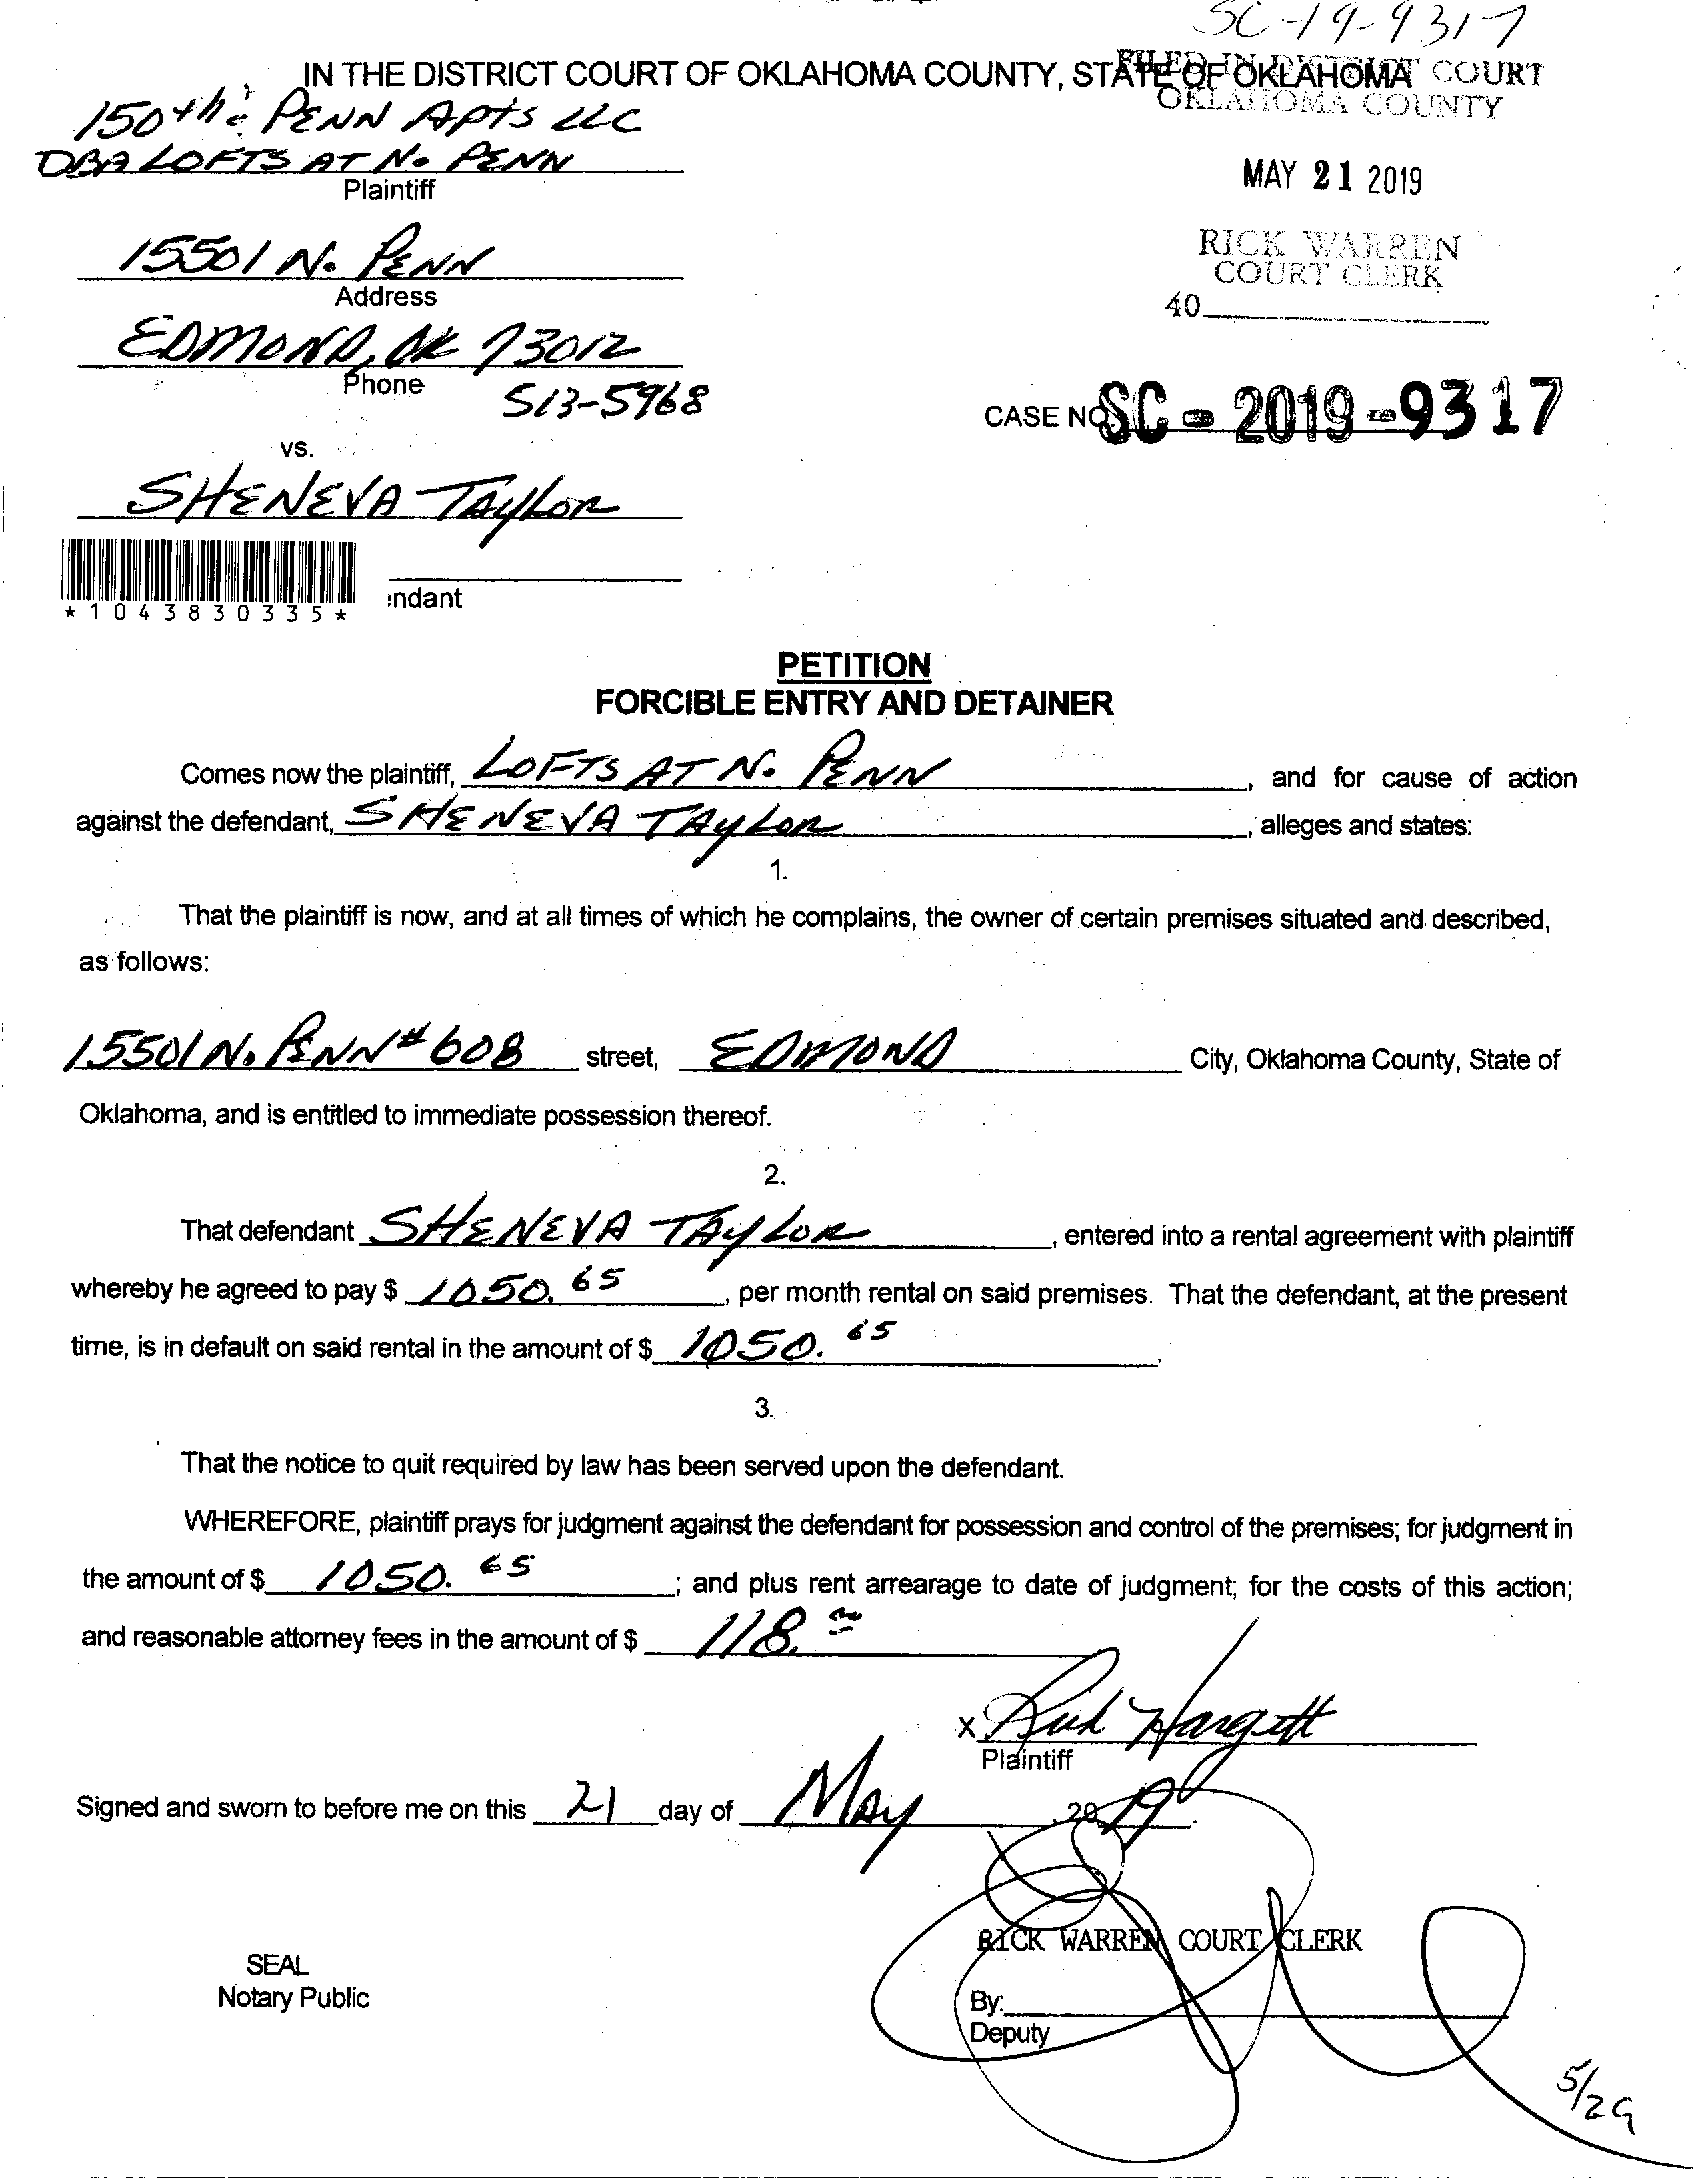 SC-19-9317
IN THE DISTRICT COURT OF OKLAHOMA COUNTY, STATE OF OKLAHOMA
FILED IN DISTRICT COURT
OKLAHOMA COUNTY
150th & PENN APTS LLC
DBA LOFTS AT N. PENN
Plaintiff
MAY 21 2019
15501 N. PENN
Address
RICK WARREN
COURT CLERK
40
EDMOND, OK 73012
Phone
513-5968
CASE NO SC-2019-9317
vs.
SHENEVA TAYLOR
*1043830335*
endant
PETITION
FORCIBLE ENTRY AND DETAINER
Comes now the plaintiff, LOFTS AT N. PENN, and for cause of action
against the defendant, SHENEVA TAYLOR, alleges and states:
1.
That the plaintiff is now, and at all times of which he complains, the owner of certain premises situated and described,
as follows:
15501 N. PENN #608 street, EDMOND City, Oklahoma County, State of
Oklahoma, and is entitled to immediate possession thereof.
2.
That defendant SHENEVA TAYLOR, entered into a rental agreement with plaintiff
whereby he agreed to pay $ 1050.65, per month rental on said premises. That the defendant, at the present
time, is in default on said rental in the amount of $ 1050.65.
3.
That the notice to quit required by law has been served upon the defendant.
WHEREFORE, plaintiff prays for judgment against the defendant for possession and control of the premises; for judgment in
the amount of $ 1050.65; and plus rent arrearage to date of judgment; for the costs of this action;
and reasonable attorney fees in the amount of $ 118.
x Rick Hargett
Plaintiff
Signed and sworn to before me on this 21 day of May, 2019.
RICK WARREN COURT CLERK
SEAL
Notary Public
By:
Deputy
5/29